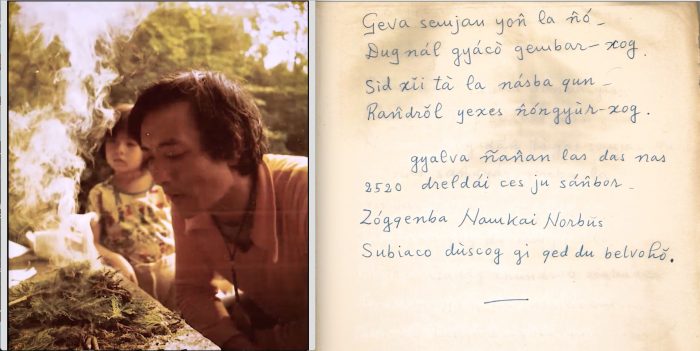 Geva semjan yoñ la ñó_
Dugnál gyácò gembar-xog.
Sìd xĭi tà la násba qun_
Rañdrŏl yexes ñóngyùr-xog.
gyalva ñañan las das nas
2520 dreldái ces ju sáñbor_
Zóggenba Namkai Norbùs
Subiaco dùscog gi qed du belvohŏ.